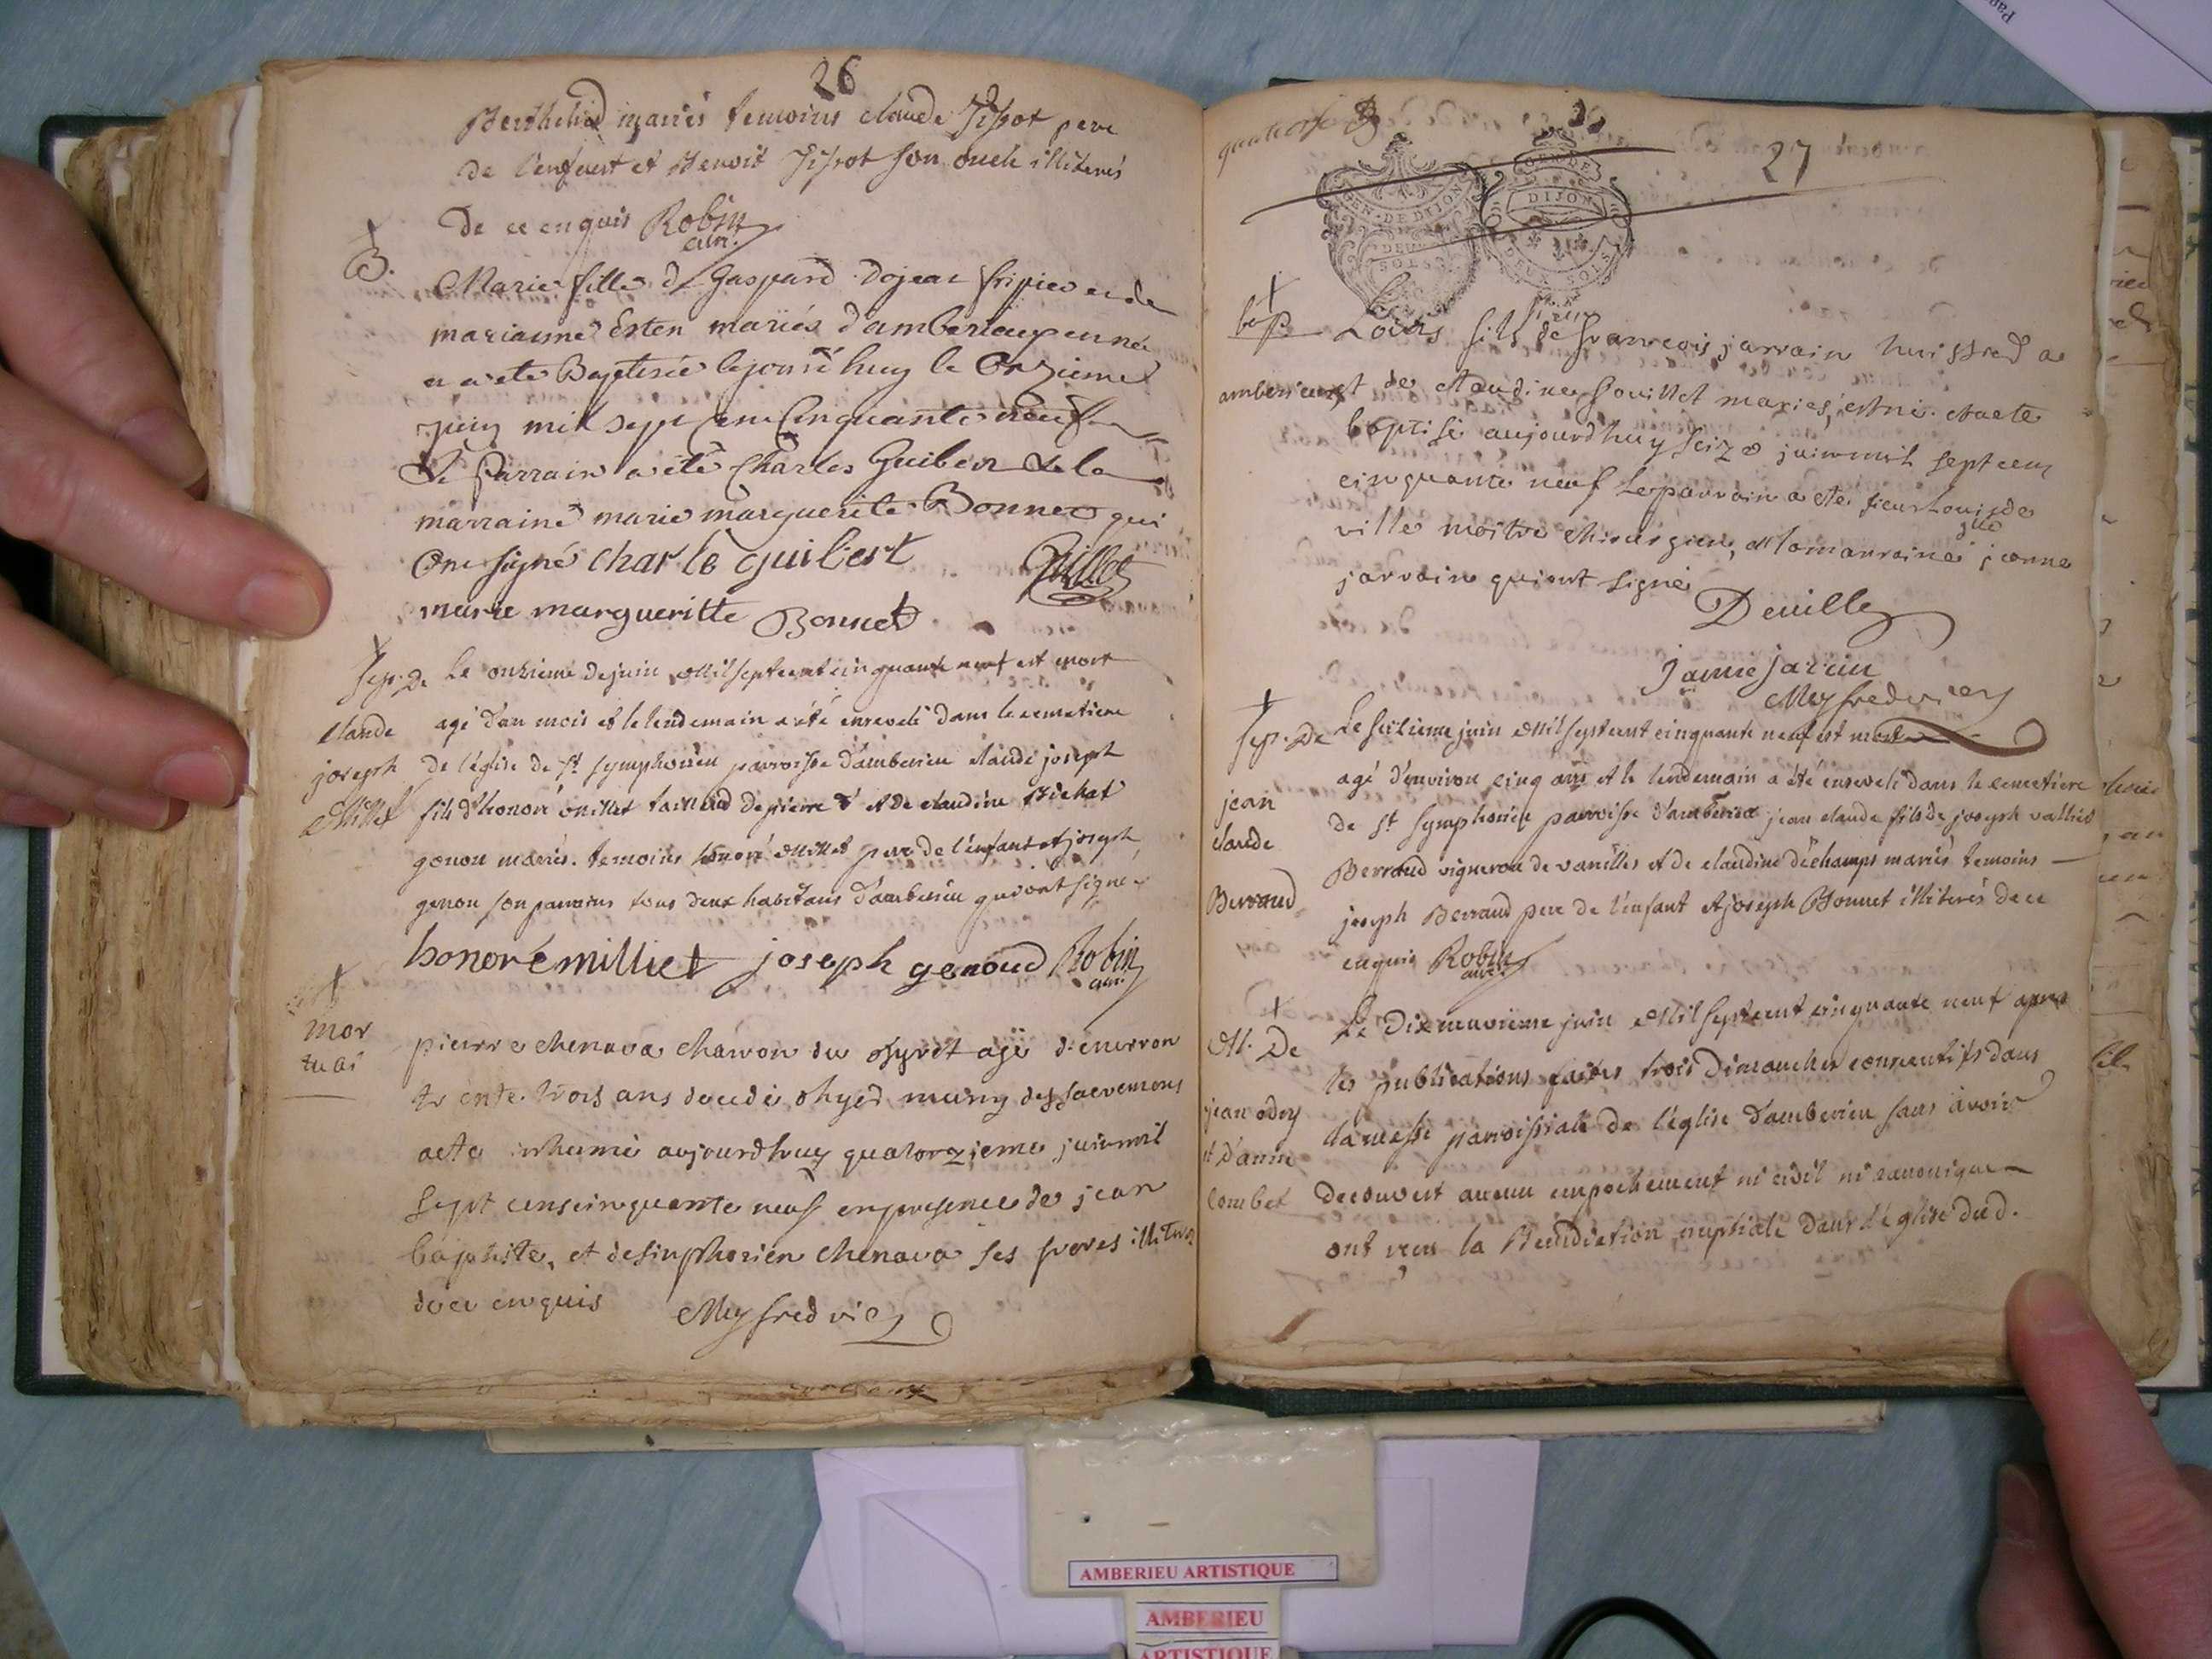 26
Berthelied mariés temoins claude Tissot pere
de l'enfant et Benoit Tissot son oncle illiterés
de ce enquis Robin
cure.
B.
Marie fille de Gaspard dojeat fripier et de
marianne Esten mariés d'amberieux en née
et a ete Baptisée le jourd'huy le Onzieme
juin mil sept cent Cinquante neuf
Le Parrain a été Charles Guibert et la
marraine marie marguerite Bonnet qui
Ont signé charle guibert
marie margueritte Bonnet
Sep. De
claude
joseph
Millet
Le onzieme de juin Mil sept cent cinquante neuf est mort
agé d'un mois et le lendemain a été enseveli dans le cemetiere
de l'église de St. symphorien parroisse d'amberieu claude joseph
fils d'honoré millet tailleur de pierre et de claudine Bichat
genou mariés. temoins honoré Millet pere de l'enfant et joseph
genou son parrains tous deux habitans d'amberieu qui ont signé
honoré milliet joseph genoud Robin
cure.
mor
tuas
pierre chenava charon du agé d'environ
trente trois ans decede muny des sacremens
a ete inhumé aujourdhuy quatorzieme juin mil
sept cens cinquante neuf en presence de jean
baptiste, et de sinphorien chenava ses freres illiteres
de ce enquis Meyfredvicz
quatorse
27
GEN. DE DIJON
DEUX SOLS
GEN. DE
DIJON
DEUX SOLS
bap
Louis fils de sieur francois jarrain huissied a
amberieux et de claudine Souillet mariés, est né. et a ete
baptisé aujourdhuy seize juin mil sept cens
cinquante neuf Le parrain a ete sieur Louis de
ville maitre chirurgien, et la marraine dlle jeanne
jarrain qui ont signé
Deville
janne jarein
Meyfredvicz
Sep. De
jean
claude
Berraud
Le seizieme juin Mil sept cent cinquante neuf est mort
agé d'environ cinq ans et le lendemain a été enseveli dans le cemetiere
de St symphorien parroisse d'amberieu jean claude fils de joseph vallier
Berraud vigneron de vareilles et de claudine dechamps mariés temoins
joseph Berraud pere de l'enfant et joseph Bonnet illiterés de ce
enquis Robin
cure.
M. De
jean odry
et d'anne
combet
Le Dix neuvieme juin Mil sept cent cinquante neuf apres
les publications faites trois dimanches consecutifs dans
la messe parroissiale de l'église d'amberieu sans avoir
decouvert aucun empechement ni civil ni canonique
ont reçu la Benediction nuptiale dans l'église dud.
AMBERIEU ARTISTIQUE
AMBERIEU
ARTISTIQUE